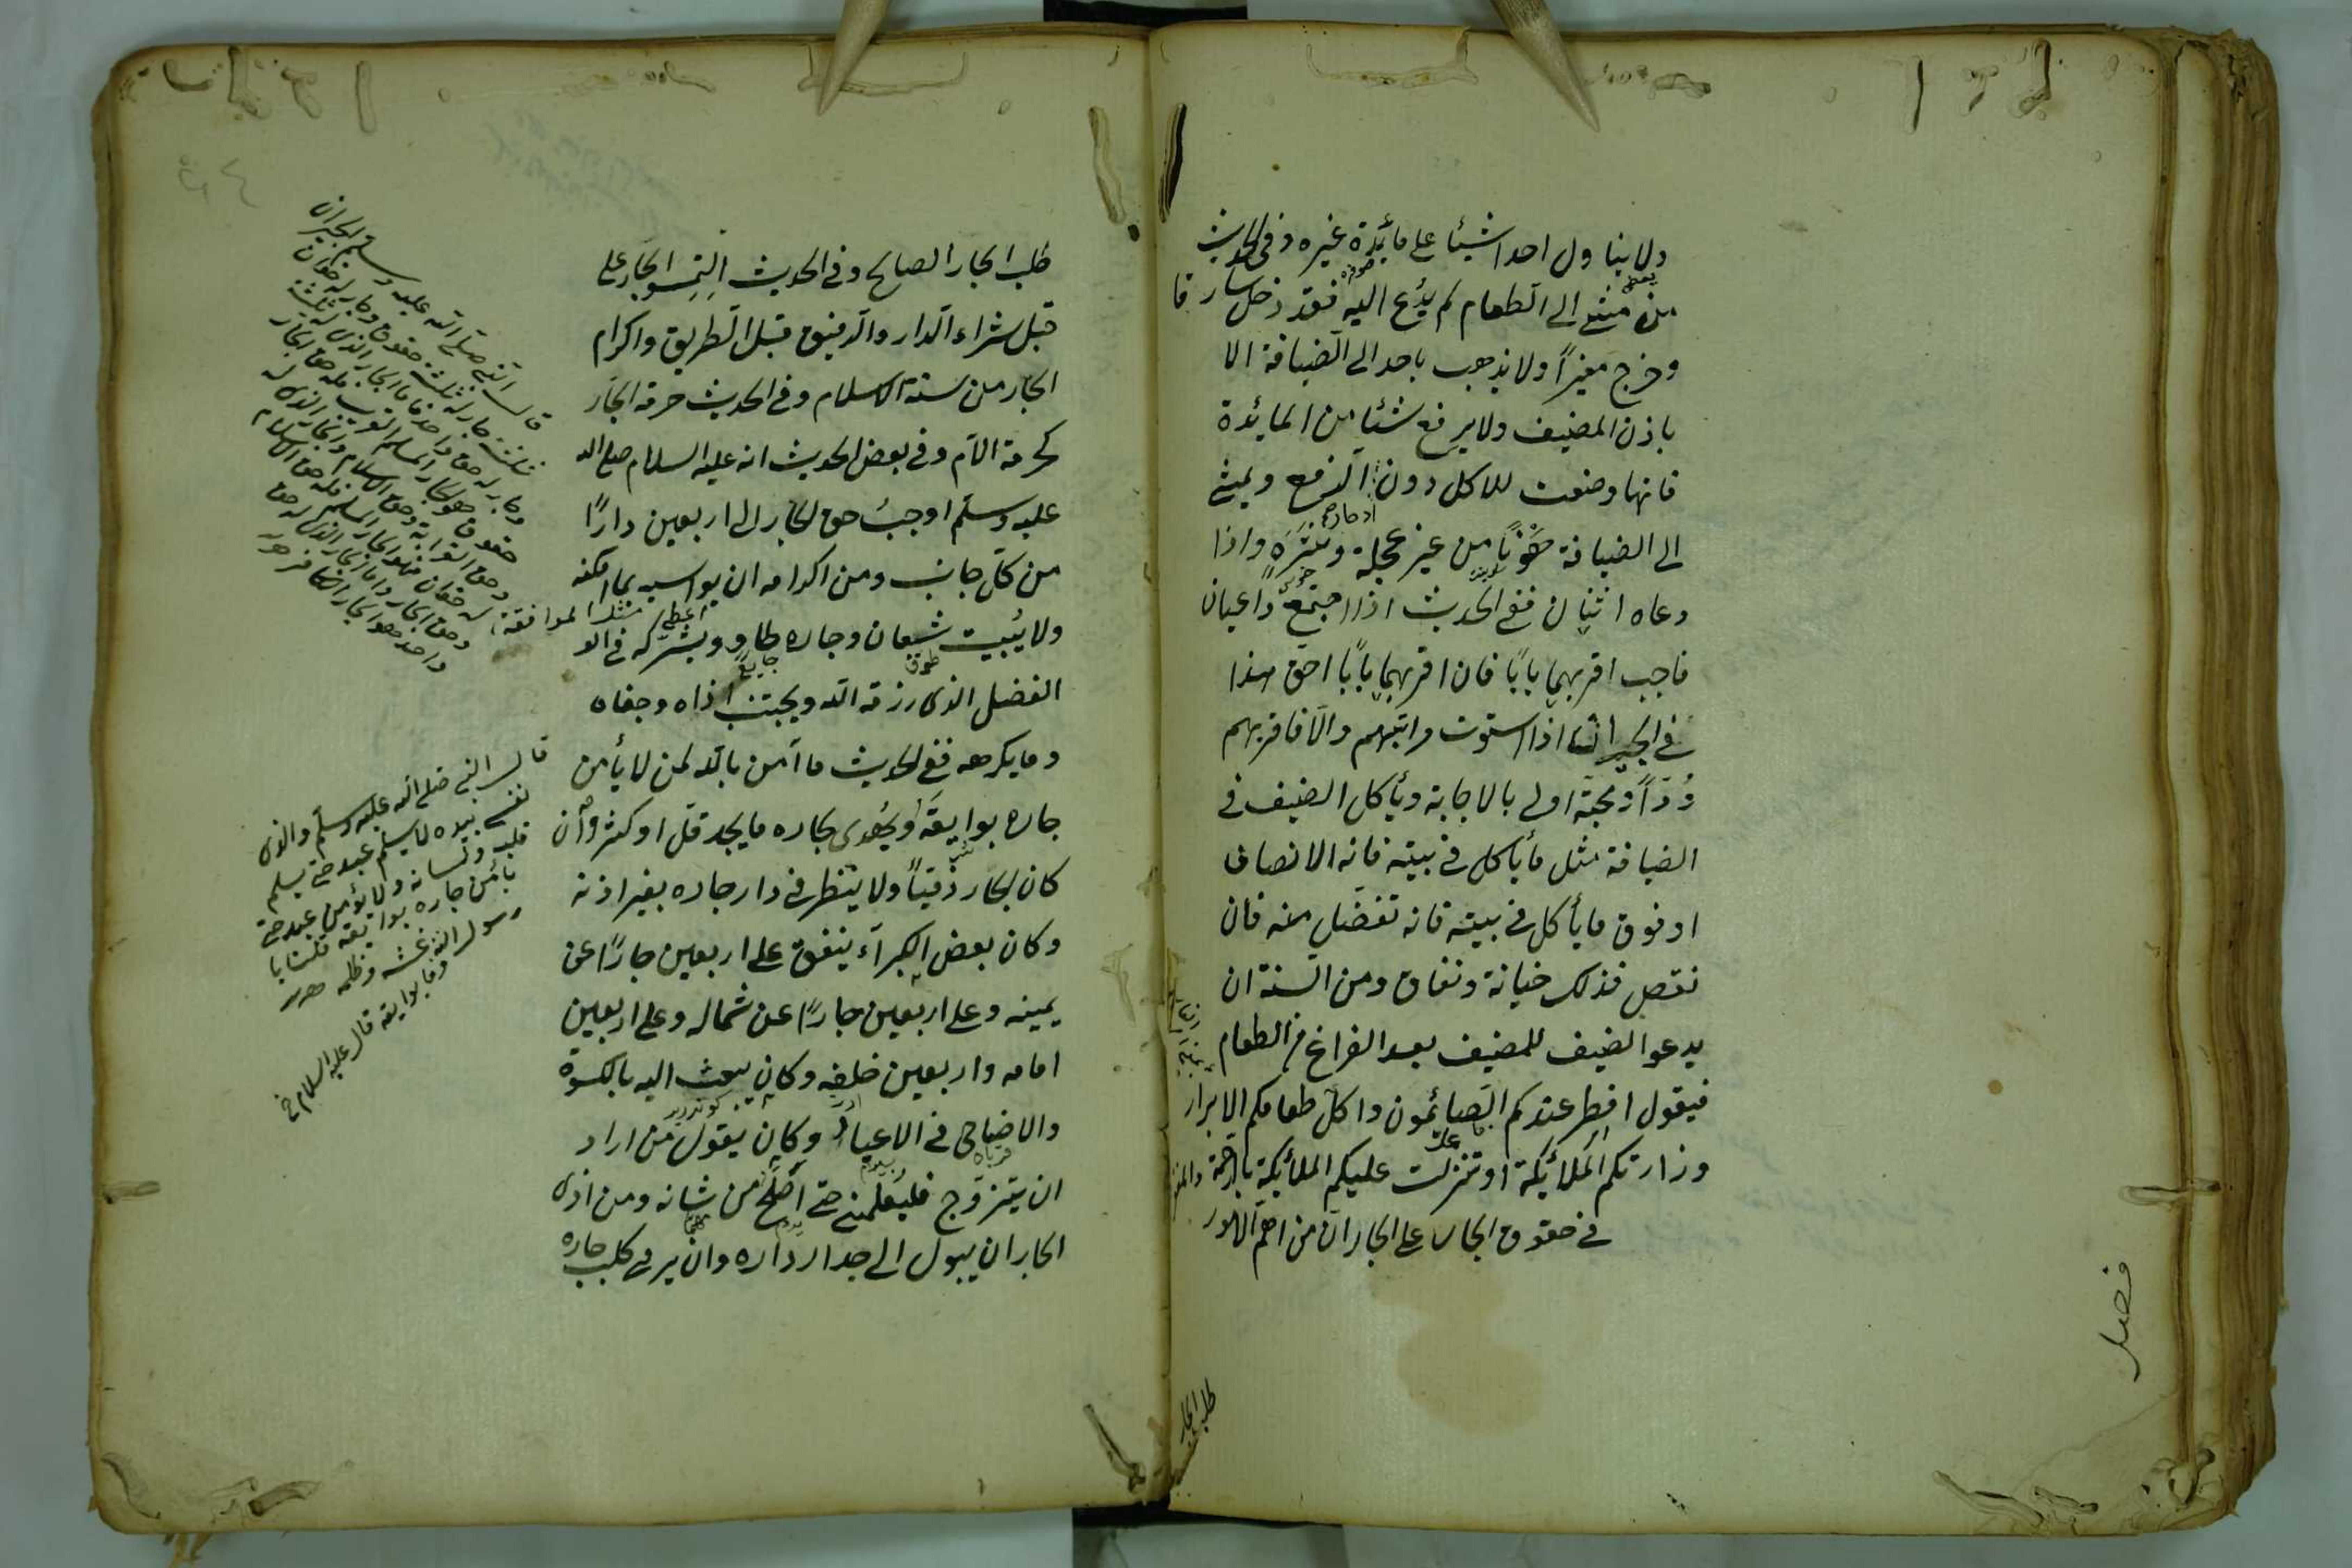 ولا يناول احدا شيئا على مائدة غيره وفى الحديث
من مشى الى الطعام لم يدع اليه فقد دخل سارقا
وخرج مغيرا ولا يذهب باحد الى الضيافة الا
باذن المضيف ولا يرفع شيئا من المايئدة
فانها وضعت للاكل دون الرفع ويمشى
الى الضيافة هونا من غير عجلة وشره واذا
دعاه اثنان ففى الحديث اذا اجتمع داعيان
فاجب اقربهما بابا فان اقربهما بابا احق هذا
فى الجيران اذا استوت مراتبهم والا فاقربهم
ودا ومحبة اولى بالاجابة ويأكل الضيف فى
الضيافة مثل ما يأكل فى بيته فانه الانصاف
او فوق ما يأكل فى بيته فانه تفضل منه فان
نقص فذلك خيانة ونفاق ومن السنة ان
يدعو الضيف للمضيف بعد الفراغ من الطعام
فيقول افطر عندكم الصائمون واكل طعامكم الابرار
وزارتكم الملائكة او تنزلت عليكم الملائكة بالرحمة
فى حقوق الجار على الجار ان من اهم الامور
فصل
طلب الجار
طلب الجار الصالح وفى الحديث التمسو الجار على
قبل شراء الدار والرفيق قبل الطريق واكرام
الجار من سنة الاسلام وفى الحديث حرمة الجار
كحرمة الام وفى بعض الحديث انه عليه السلام صلى الله
عليه وسلم اوجب حق الجار الى اربعين دارا
من كل جانب ومن اكرامه ان يواسيه بما امكنه
ولا يبيت شبعان وجاره طاو ويشركه فى
الفضل الذى رزقه الله ويجتنب اذاه وجفاه
وما يكرهه ففى الحديث ما آمن بالله لمن لا يأمن
جاره بوايقه ويهدى بجاره ما يجد قل او كثر وان
كان الجار ذميا ولا ينظر فى دار جاره بغير اذنه
وكان بعض الكبرآء ينفق على اربعين جارا عن
يمينه وعلى اربعين جارا عن شماله وعلى اربعين
امامه واربعين خلفه وكان يبعث اليه بالكسوة
والاضياحى فى الاعياد وكان يقول من اراد
ان يتزوج فليعلمنى حتى اصلح من شانه ومن اذى
الجار ان يبول الى جدار داره وان يرمى كلب جاره
قال النبى صلى الله عليه وسلم الجيران
ثلثة جار له ثلثة حقوق وجار له حقان
وجار له حق واحد فاما الجار الذى له ثلثة
حقوق فهو الجار المسلم القريب فله حق الجار
وحق القرابة وحق الاسلام والجار الذى له
حقان فهو الجار المسلم فله حق الاسلام
وحق الجار واما الجار الذى له حق
واحد هو الجار
قال النبى صلى الله عليه وسلم والذى
نفسى بيده لا يسلم عبد حتى يسلم
قلبه ولسانه ولا يؤمن عبد حتى
يأمن جاره بوايقه قلنا يا
رسول الله وما بوايقه قال عليه السلام
غشه وظلمه